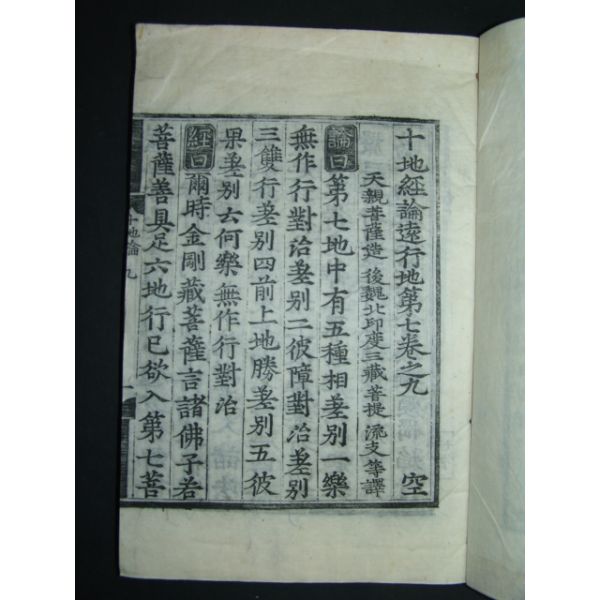 十地經論遠行地第七卷之九 空
天親菩薩造 後魏北印度三藏菩提流支等譯
論曰 第七地中有五種相差別一樂
無作行對治差別二彼障對治差別
三雙行差別四前上地勝差別五彼
果差別云何樂無作行對治
經曰 爾時金剛藏菩薩言諸佛子若
菩薩善具足六地行已欲入第七菩
十地論 九